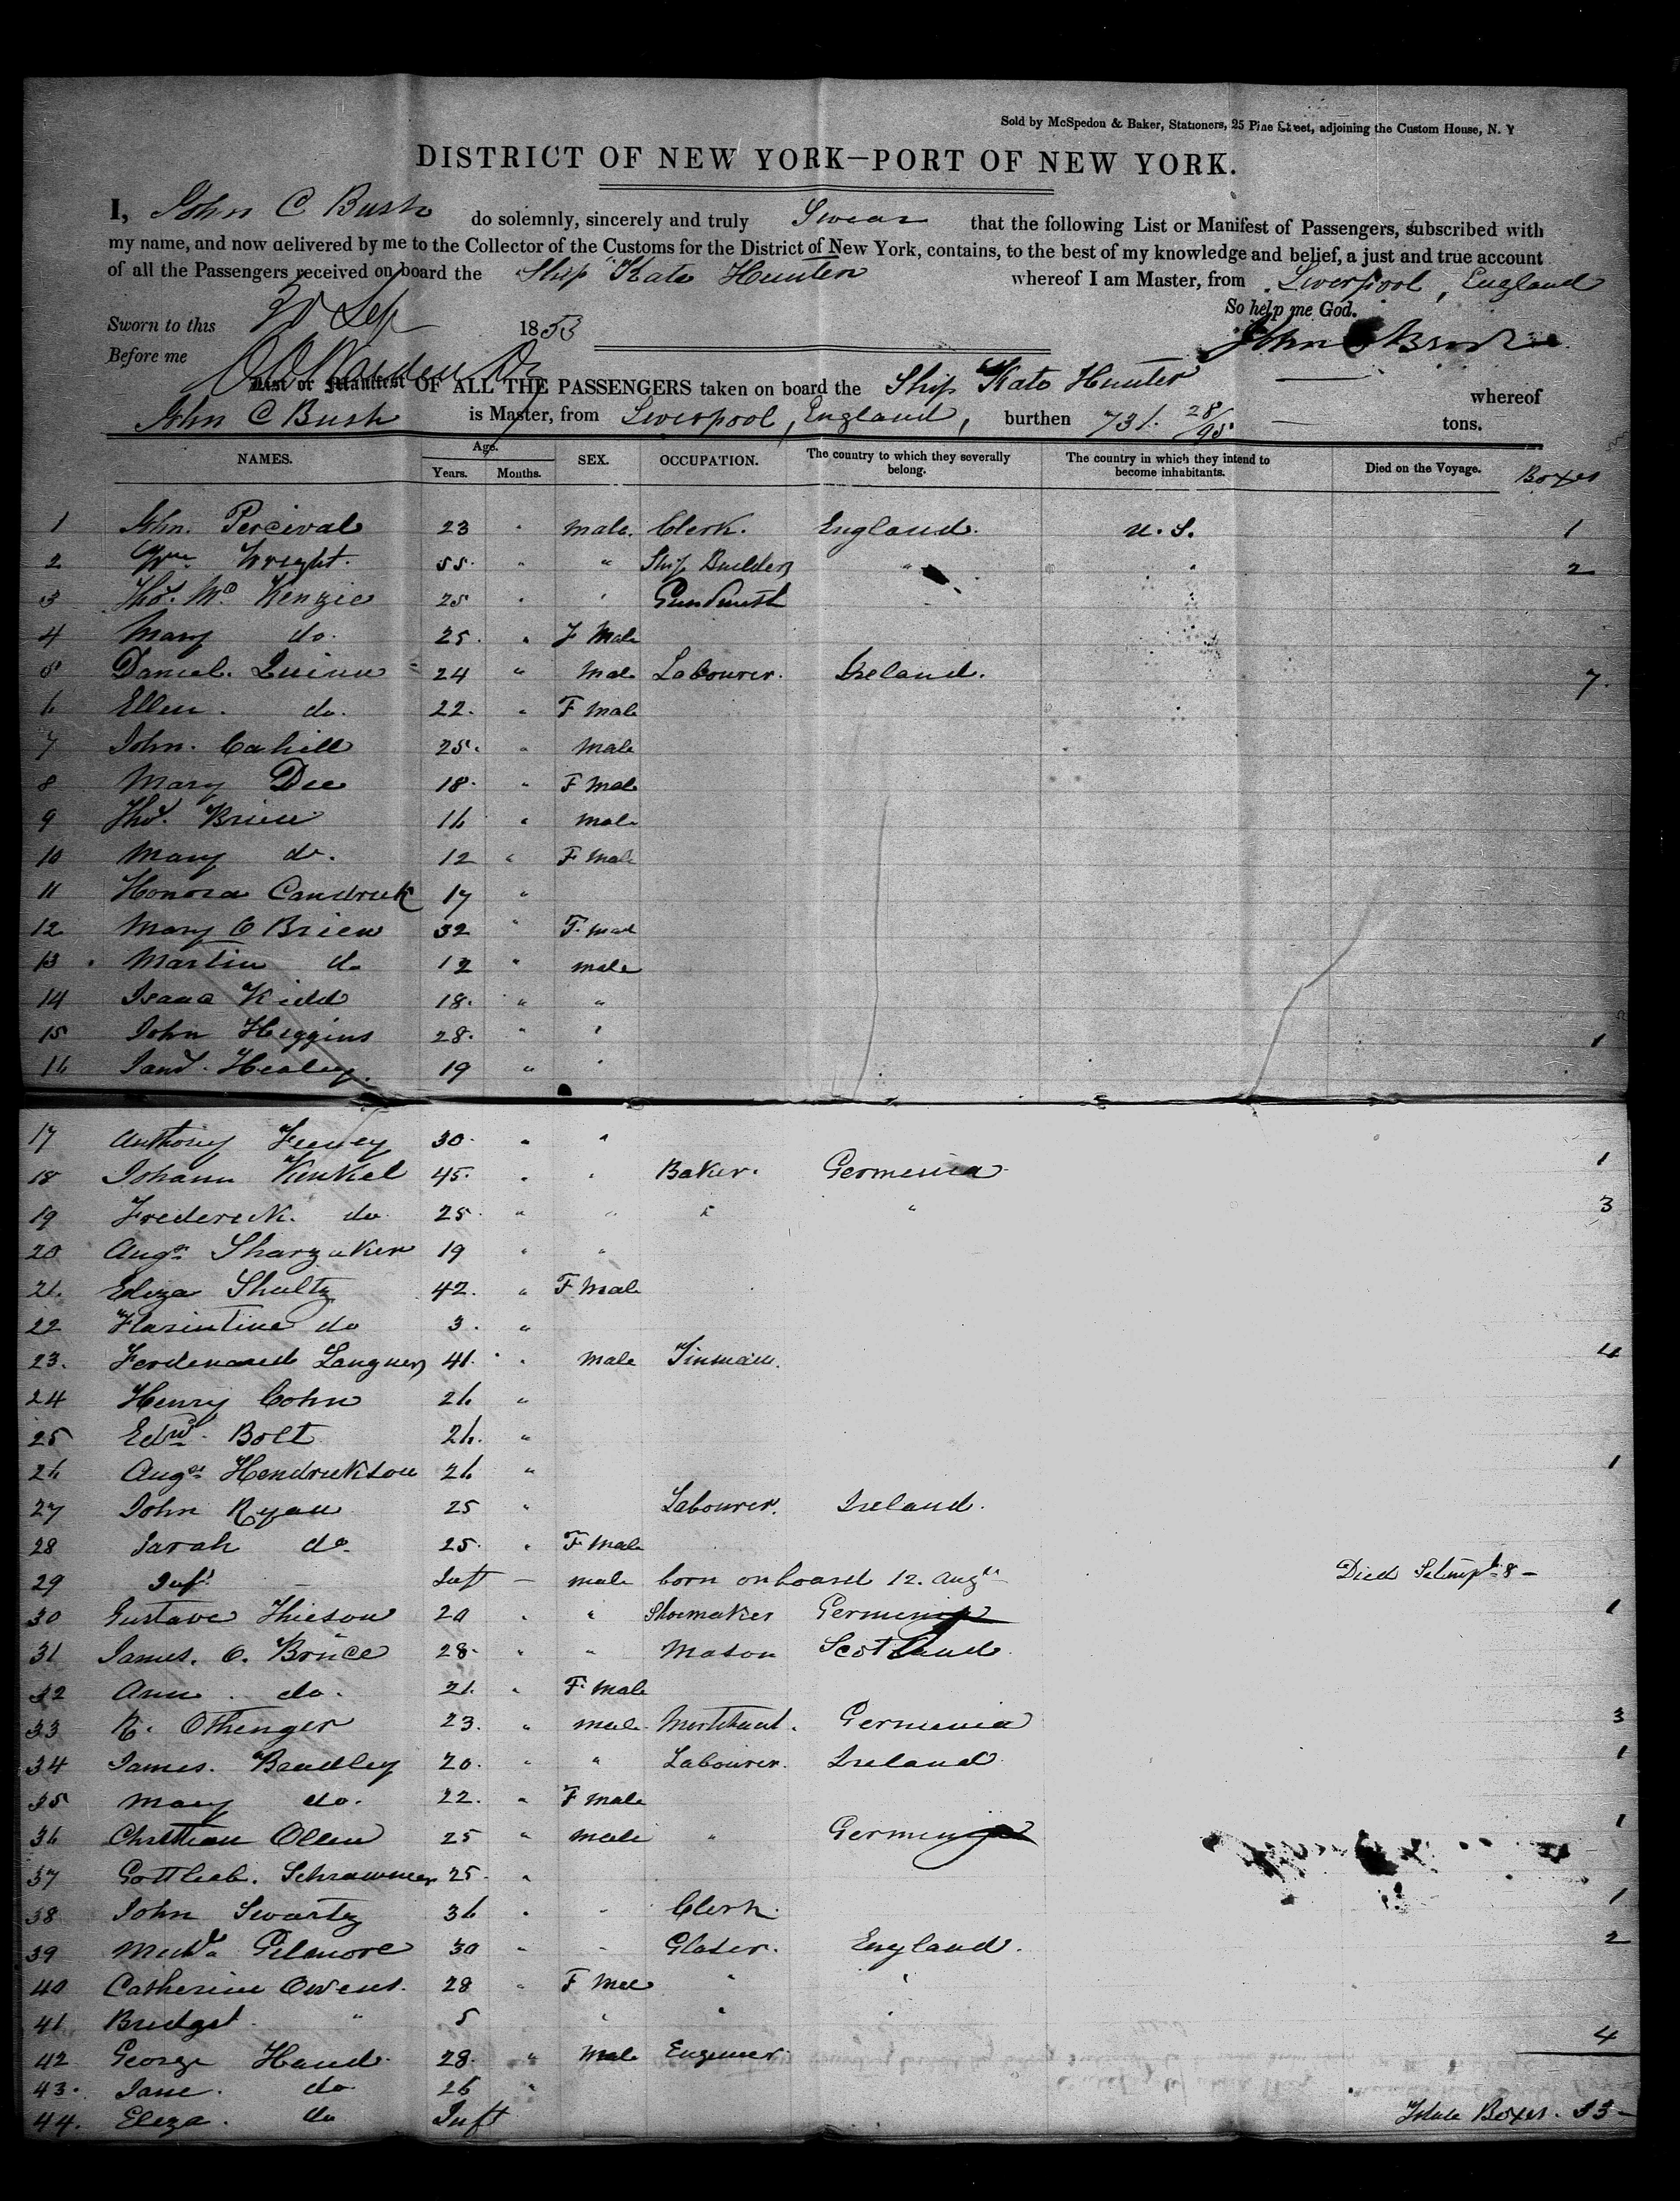 Sold by McSpedon & Baker, Stationers, 25 Pine Street, adjoining the Custom House, N. Y
DISTRICT OF NEW YORK—PORT OF NEW YORK.
I, John C Bush do solemnly, sincerely and truly Swear that the following List or Manifest of Passengers, subscribed with
my name, and now delivered by me to the Collector of the Customs for the District of New York, contains, to the best of my knowledge and belief, a just and true account
of all the Passengers received on board the Ship Kate Hunter whereof I am Master, from Liverpool, England
So help me God.
Sworn to this 20 Sep 1853
John C Bush
Before me
List or Manifest OF ALL THE PASSENGERS taken on board the Ship Kate Hunter whereof
John C Bush is Master, from Liverpool, England, burthen 731. 28/95 tons.
NAMES. Age. Years. Months. SEX. OCCUPATION. The country to which they severally belong. The country in which they intend to become inhabitants. Died on the Voyage. Boxes
1 John. Percival 23 " male. Clerk. England. U.S. 1
2 Wm Wright. 55. " " Ship Builder " " 2
3 Thos. Mc Kenzie 25 " " Gunsmith
4 Mary do. 25. " F Male
5 Daniel. Quinn 24 " Male Labourer. Ireland. 7.
6 Ellen. do. 22. " F Male
7 John. Cahill 25. " Male
8 Mary Dee 18. " F Male
9 Thos. Brien 16 " male
10 Mary do. 12 " F Male
11 Honora Candrick 17 "
12 Mary O Brien 32 " F. Male
13 Martin do 12 " male
14 Isaac Kidd 18. " "
15 John Higgins 28. " " 1
16 Healey. 19 " "
17 Anthony Feeney 30. " "
18 Johann Kinkel 45. " " Baker. Germenia 1
19 Frederick. do 25. " " " " 3
20 Augs 19 " "
21. Eliza Shultz 42. " F Male
22 Florintine do 3. "
23. Ferdenand Langner 41. " male Tinman. 4
24 Henry Cohn 26 "
25 Edwd. Bolt 26. "
26 Augs Hendrickson 26 " 1
27 John Ryan 25 " Labourer. Ireland.
28 Sarah do. 25. " F Male
29 Inft Inft — male born on board 12. Augt Died Septmbr 8 –
30 Gustave Thieson 20 " " Shoemaker Germenia 1
31 James. O. Brice 28. " " Mason Scotland
32 Ann. do. 21. " F. Male
33 R. Othenger 23. " male Merchant. Germenia 3
34 James. Bradley 20. " " Labourer. Ireland 1
35 Mary do. 22. " F Male
36 Christian Ollen 25 " male " Germenia 1
37 Gottlieb. Schrammer 25. "
38 John Swartz 36 " " Clerk. 1
39 Gilmore 30 " " Glaser. England. 2
40 Catherine Owens. 28 " F Male " "
41 Bridget " 5 " " "
42 George Hand. 28. " Male Engineer. 4
43. Jane. do 26 "
44. Eliza. do Inft
Boxes. 33 –